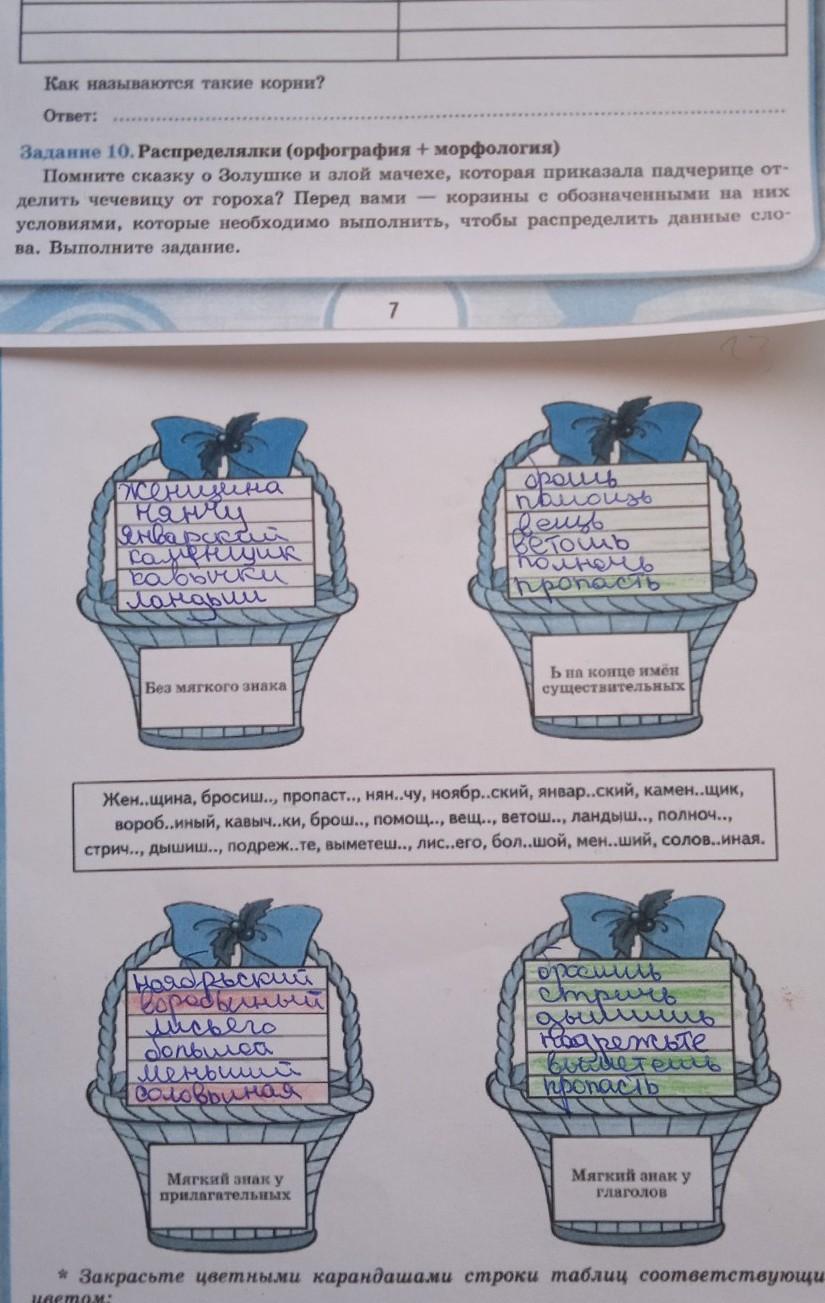 Как называются такие корни?
Ответ:
Задание 10. Распределялки (орфография + морфология)
Помните сказку о Золушке и злой мачехе, которая приказала падчерице от-
делить чечевицу от гороха? Перед вами — корзины с обозначенными на них
условиями, которые необходимо выполнить, чтобы распределить данные сло-
ва. Выполните задание.
7
женщина
нянчу
январский
каменщик
кавычки
ландыш
Без мягкого знака
брошь
помощь
вещь
ветошь
полночь
пропасть
Ь на конце имён
существительных
Жен..щина, бросиш.., пропаст.., нян..чу, ноябр..ский, январ..ский, камен..щик,
вороб..иный, кавыч..ки, брош.., помощ.., вещ.., ветош.., ландыш.., полноч..,
стрич.., дышиш.., подреж..те, выметеш.., лис..его, бол..шой, мен..ший, солов..иная.
ноябрьский
воробьиный
лисьего
большой
меньший
соловьиная
Мягкий знак у
прилагательных
стричь
дышишь
подрежьте
выметешь
пропасть
Мягкий знак у
глаголов
* Закрасьте цветными карандашами строки таблиц соответствующи
цветом: